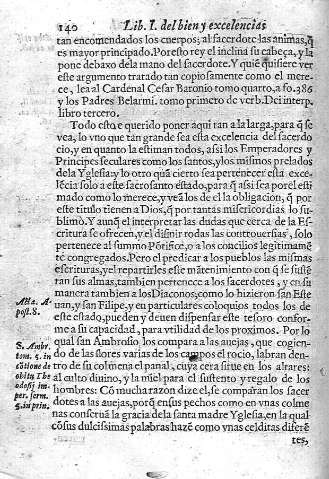 140 Lib. I. del bien y excelencias
tan encomendados los cuerpos; al sacerdote las animas, q̃
es mayor principado. Por esto rey el inclina su cabeça, y la
pone debaxo de la mano del sacerdote. Y quiẽ quisiere ver
este argumento tratado tan copiosamente como el mere-
ce, lea al Cardenal Cesar Baronio tomo quarto, a fo. 386
y los Padres Belarmi. tomo primero de verb. Dei interp.
libro tercero.
Todo esto, e querido poner aqui tan a la larga, para q̃ se
vea, lo vno que tan grande sea esta excelencia del sacerdo
cio, y en quanto la estiman todos, assi los Emperadores y
Principes seculares como los santos, y los mismos prelados
de la Yglesia y lo otro quã cierto sea pertenecer esta exce-
lẽcia solo a este sacrosanto estado, para q̃ assi sea por el esti
mado como lo merece, y veã los de el la obligacion, q̃ por
este titulo tienen a Dios, q̃ por tantas misericordias lo su-
blimò. Y aunq̃ el interpretar las dudas que cerca de la Es-
critura se ofrecen, y el difinir todas las controuersias, solo
pertenece al summo Põtifice, o a los concilios legitimamẽ
te congregados. Pero el predicar a los pueblos las mismas
escrituras, y el repartirles este mãtenimiento con q̃ se sustẽ
tan sus almas, tambien pertenece a los sacerdotes, y en su
manera tambien a los Diaconos, como lo hizieron san Este
uan, y san Filipe, y en particulares coloquios todos los de
este estado, pueden y deuen dispensar este tesoro confor-
me a su capacidad, para vtilidad de los proximos. Por lo
qual san Ambrosio, los compara a las auejas, que cogien-
do de las flores varias de los campos el rocio, labran den-
tro de su colmena el panal, cuya cera sirue en los altares:
al culto diuino, y la miel para el sustento y regalo de los
hombres: Cõ mucha razon dize el, se comparan los sacer
dotes a las auejas, porq̃ en sus pechos como en vnas colme
nas conseruã la gracia de la santa madre Yglesia, en la qual
cõ sus dulcissimas palabras hazẽ como vnas celditas diferẽ
tes,
Acta. A-
post. 8.
S. Ambr.
tom. 5. in
obitu Theo
dosij im-
per. serm.
5. in prin.